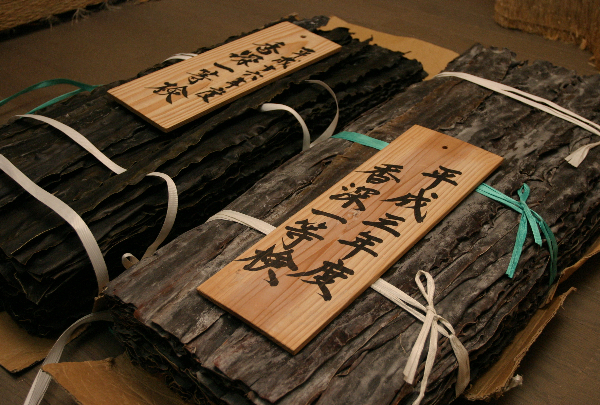 平成十六年度
香深一等検
平成三年度
香深一等検